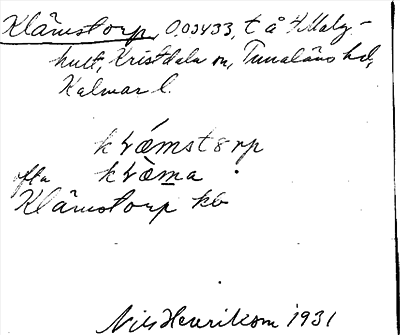 Klämstorp, 0,00433, t å 4 Maly-
hult, Kristdala sn, Tunaläns hd,
Kalmar l.
kɬǽmstərp
ofta kɬæ̀ma
Klämstorp kb
Nils Henrikson 1931